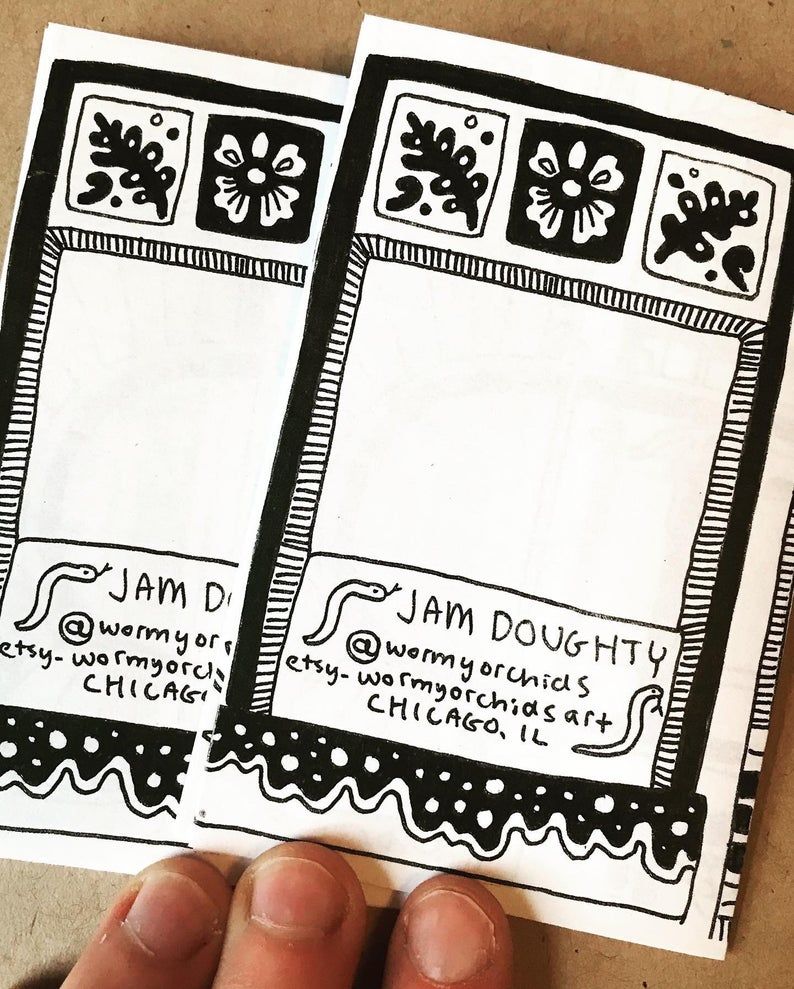 JAM D
@wormyor
etsy-wormyorchi
CHICAG
JAM DOUGHTY
@wormyorchids
etsy-wormyorchids art
CHICAGO, IL